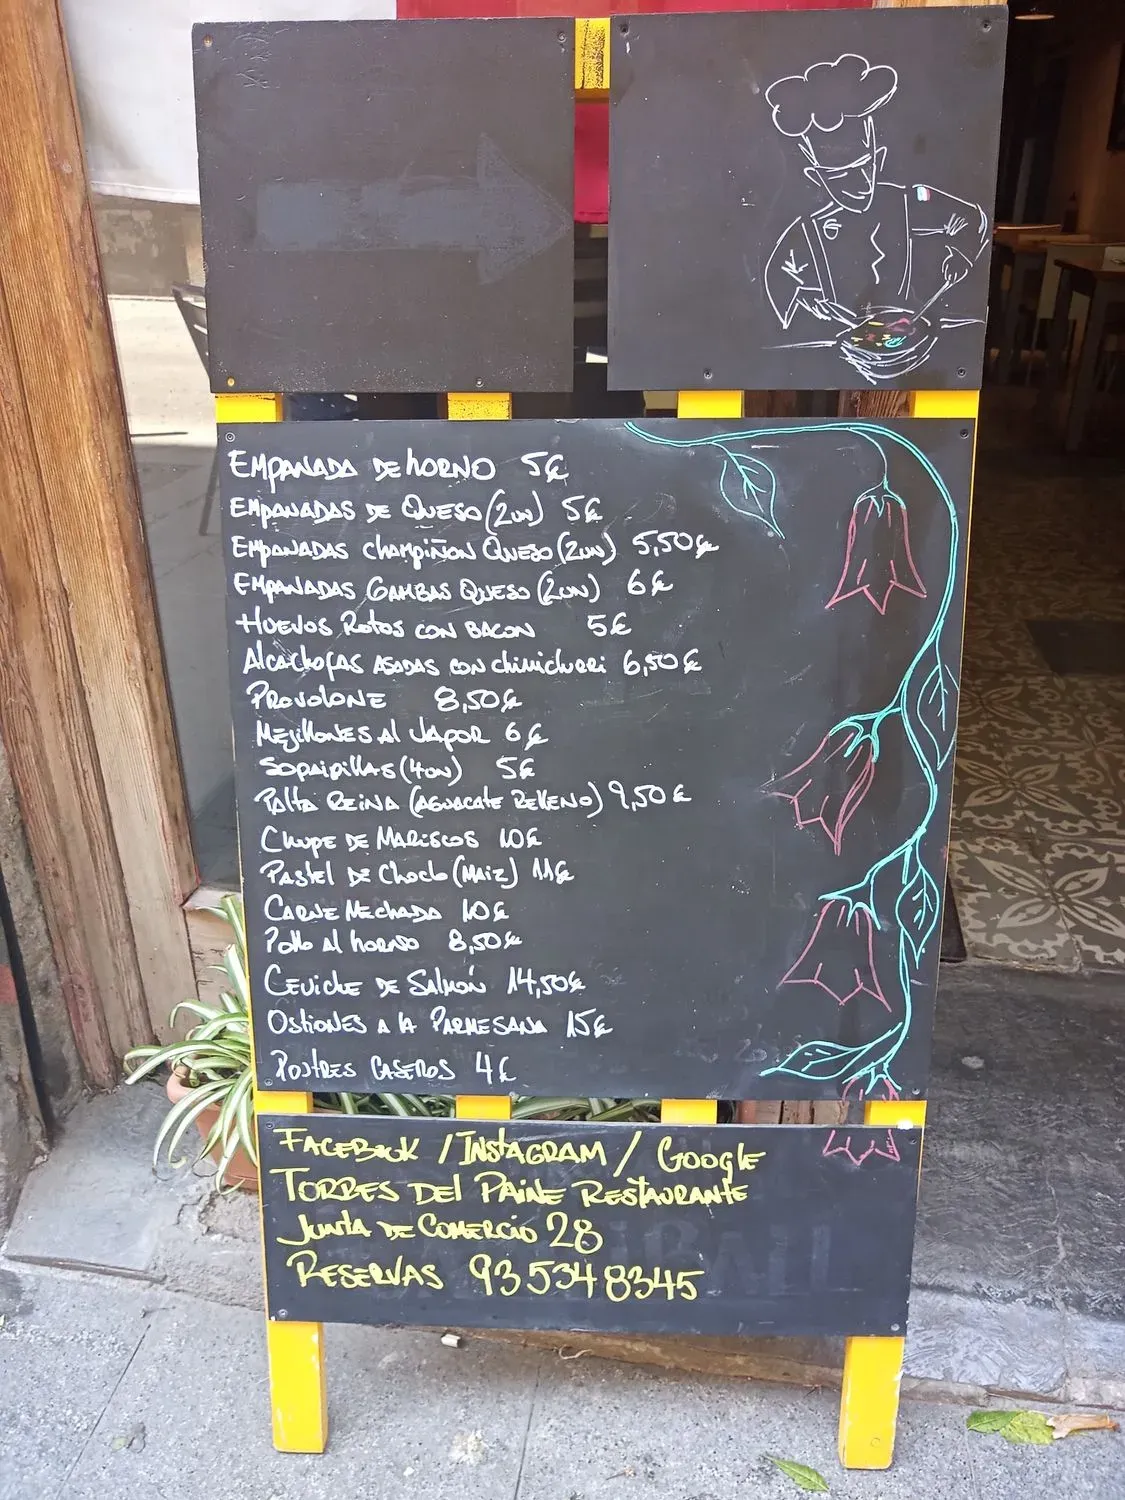 EMPANADA DE HORNO 5€
EMPANADAS DE QUESO (2UN) 5€
EMPANADAS CHAMPIÑON QUESO (2UN) 5,50€
EMPANADAS GAMBAS QUESO (2UN) 6€
HUEVOS ROTOS CON BACON 5€
ALCACHOFAS ASADAS CON CHIMICHURRI 6,50€
PROVOLONE 8,50€
MEJILLONES AL VAPOR 6€
SOPAIPILLAS (4UN) 5€
PALTA REINA (AGUACATE RELLENO) 9,50€
CHUPE DE MARISCOS 10€
PASTEL DE CHOCLO (MAIZ) 11€
CARNE MECHADA 10€
POLLO AL HORNO 8,50€
CEVICHE DE SALMÓN 14,50€
OSTIONES A LA PARMESANA 15€
POSTRES CASEROS 4€
FACEBOOK / INSTAGRAM / GOOGLE
TORRES DEL PAINE RESTAURANTE
JUNTA DE COMERCIO 28
RESERVAS 93 534 8345